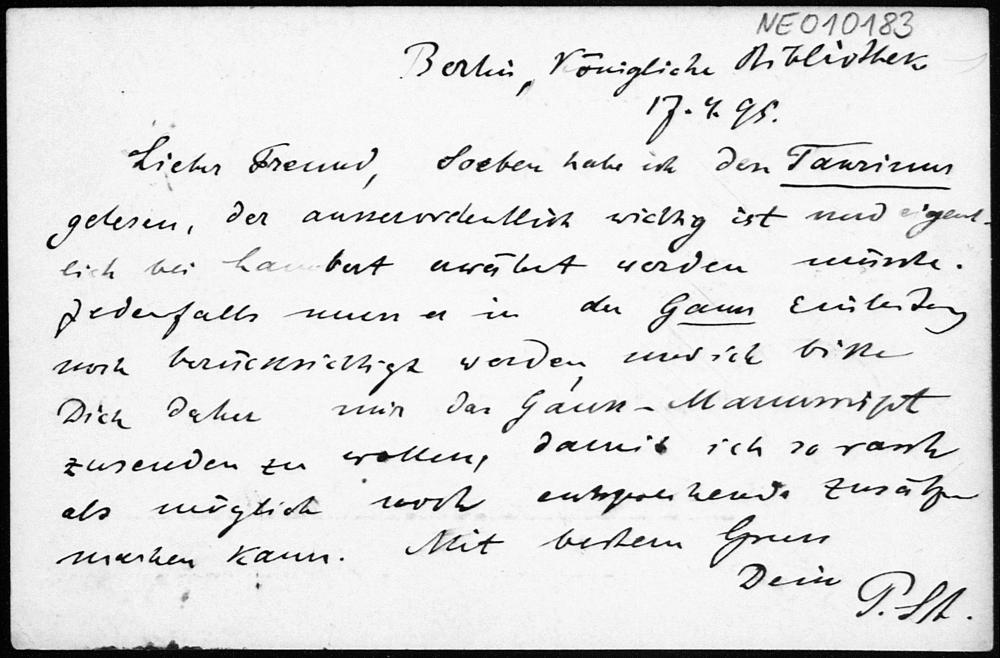 NE010183
Berlin, Königliche Bibliothek
17.4.95.
Lieber Freund, Soeben habe ich den Taurinus
gelesen, der ausserordentlich wichtig ist und eigent-
lich bei Lambert erwähnt werden müsste.
Jedenfalls muss er in der Gauss Einleitung
noch berücksichtigt werden, und ich bitte
Dich daher mir das Gauss-Manuscript
zusenden zu wollen, damit ich so rasch
als möglich noch entsprechende Zusätze
machen kann. Mit bestem Gruss
Dein
P. St.